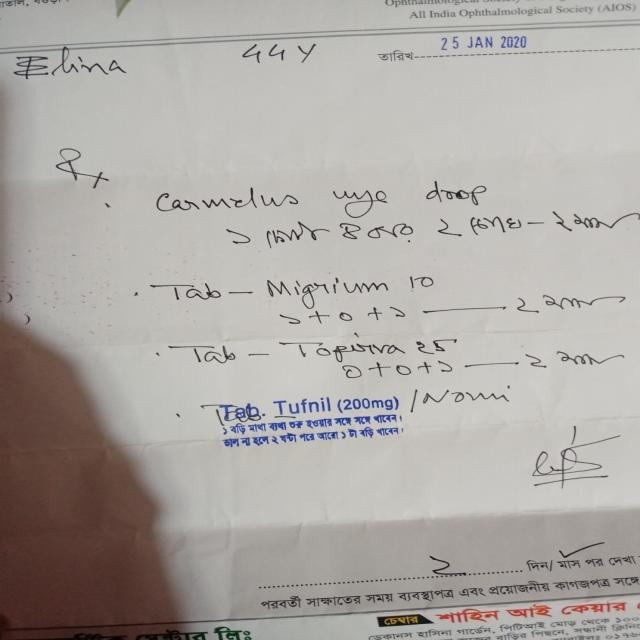 All India Ophthalmological Society (AIOS)
Elina 44Y তারিখ 25 JAN 2020
Rx
Carmelus eye drop
১ ফোটা ৪ বার ২ চোখে - ২ মাস
Tab - Migrium 10
১+০+১ — ২ মাস
Tab - Topirva 25
০+০+১ — ২ মাস
Tab. Tufnil (200mg) /Nomi
১ বড়ি মাথা ব্যথা শুরু হওয়ার সঙ্গে সঙ্গে খাবেন।
ভাল না হলে ২ ঘন্টা পরে আরো ১ টা বড়ি খাবেন।
২ দিন/ মাস পর দেখা
পরবর্তী সাক্ষাতের সময় ব্যবস্থাপত্র এবং প্রয়োজনীয় কাগজপত্র সঙ্গে
চেম্বার শাহিন আই কেয়ার
লিঃ